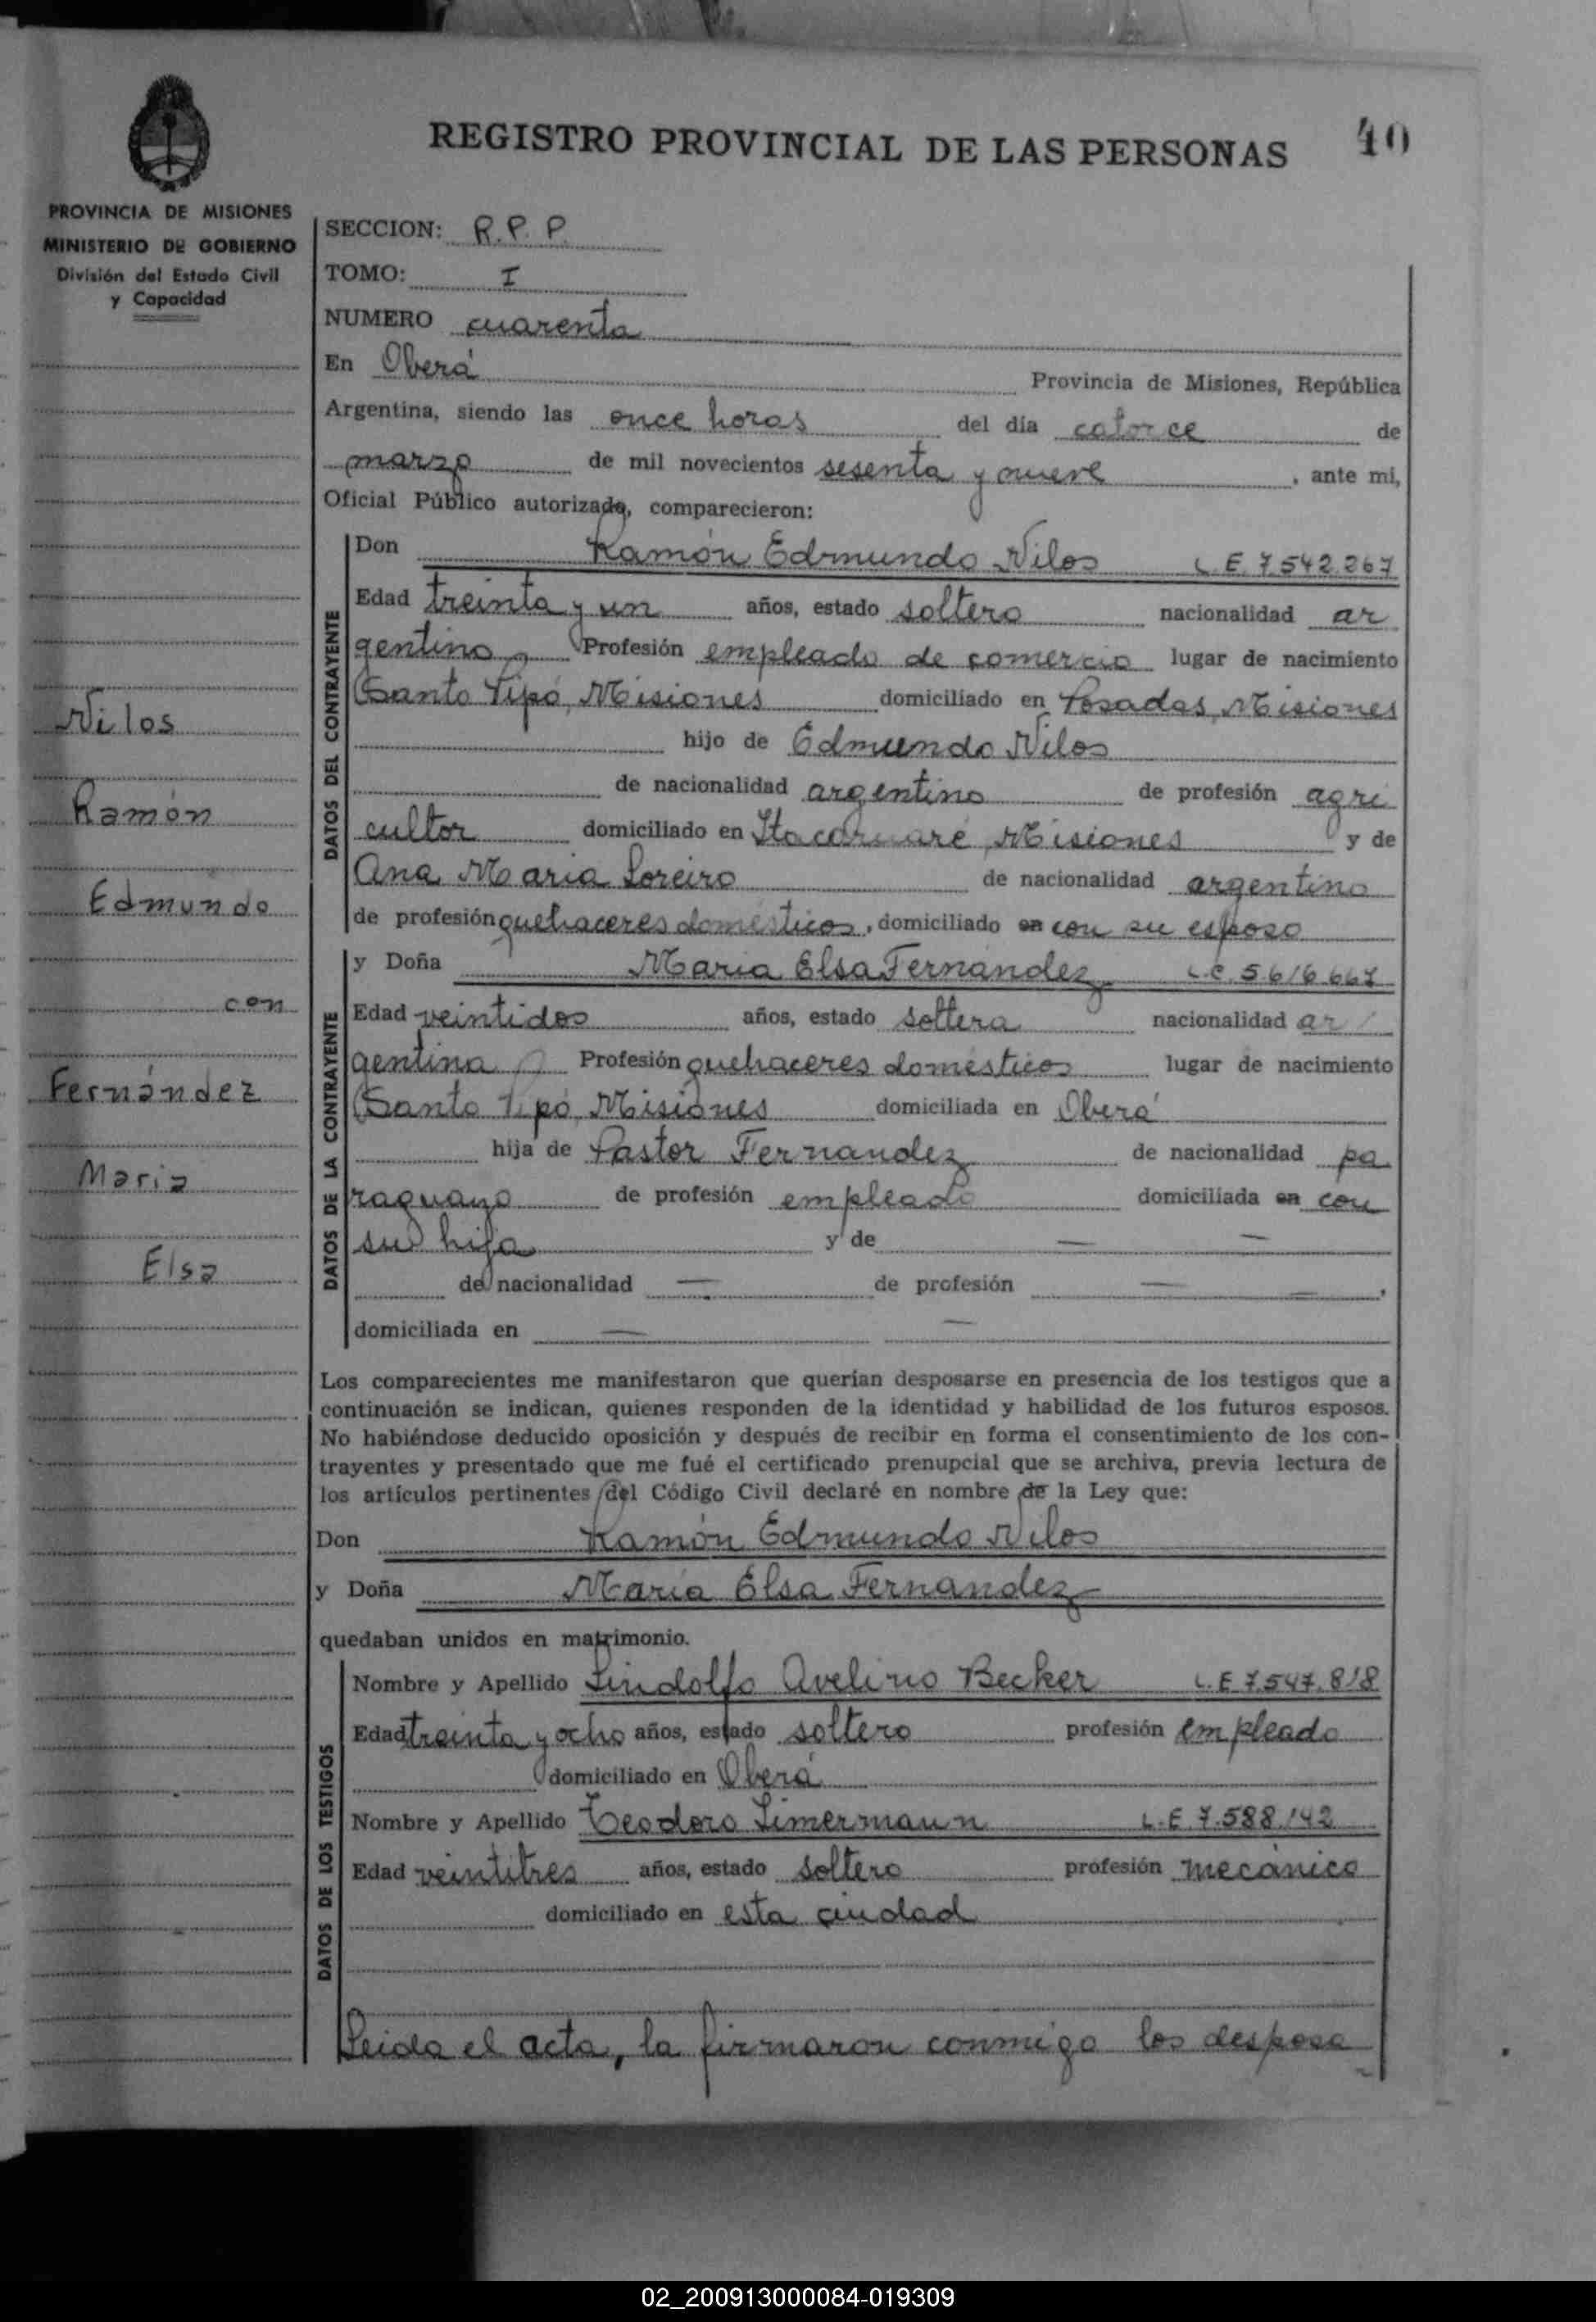 REGISTRO PROVINCIAL DE LAS PERSONAS 40
PROVINCIA DE MISIONES
MINISTERIO DE GOBIERNO
División del Estado Civil
y Capacidad
Nilos
Ramón
Edmundo
con
Fernández
María
Elsa
SECCION: R. P. P.
TOMO: I
NUMERO cuarenta
En Oberá Provincia de Misiones, República
Argentina, siendo las once horas del día catorce de
marzo de mil novecientos sesenta y nueve, ante mi,
Oficial Público autorizado, comparecieron:
DATOS DEL CONTRAYENTE
Don Ramón Edmundo Nilos L.E. 7.542.267
Edad treinta y un años, estado soltero nacionalidad ar
gentino Profesión empleado de comercio lugar de nacimiento
Santo Pipó, Misiones domiciliado en Posadas, Misiones
hijo de Edmundo Nilos
de nacionalidad argentino de profesión agri
cultor domiciliado en Itacaruaré, Misiones y de
Ana María Loreiro de nacionalidad argentino
de profesión quehaceres domésticos, domiciliado en con su esposo
DATOS DE LA CONTRAYENTE
y Doña María Elsa Fernández L.C. 5.616.667
Edad veintidos años, estado soltera nacionalidad ar
gentina Profesión quehaceres domésticos lugar de nacimiento
Santo Pipó, Misiones domiciliada en Oberá
hija de Pastor Fernandez de nacionalidad pa
raguayo de profesión empleado domiciliada en con
su hija y de — —
de nacionalidad — de profesión — —,
domiciliada en — —
Los comparecientes me manifestaron que querían desposarse en presencia de los testigos que a
continuación se indican, quienes responden de la identidad y habilidad de los futuros esposos.
No habiéndose deducido oposición y después de recibir en forma el consentimiento de los con-
trayentes y presentado que me fué el certificado prenupcial que se archiva, previa lectura de
los artículos pertinentes del Código Civil declaré en nombre de la Ley que:
Don Ramón Edmundo Nilos
y Doña María Elsa Fernández
quedaban unidos en matrimonio.
DATOS DE LOS TESTIGOS
Nombre y Apellido Lindolfo Avelino Becker L.E 7.547.818
Edad treinta y ocho años, estado soltero profesión empleado
domiciliado en Oberá
Nombre y Apellido Teodoro Limermann L.E 7.588.142
Edad veintitres años, estado soltero profesión mecánico
domiciliado en esta ciudad
Leida el acta, la firmaron conmigo los desposa
02_200913000084-019309